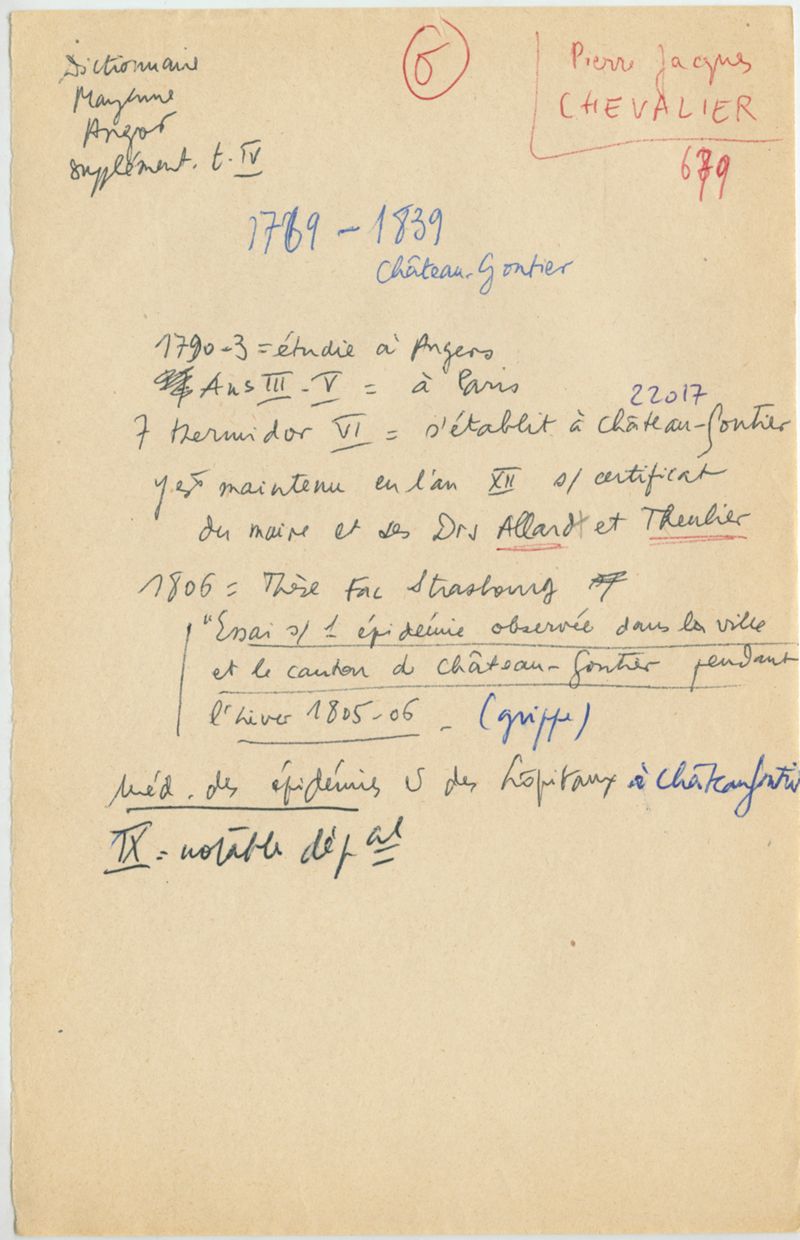 Dictionnaire
Mayenne
Angot
supplément. t. IV
6
Pierre Jacques
CHEVALIER
679
1769 - 1839
Château-Gontier
1790-3 = étudie à Angers
Ans III - V = à Paris
22017
7 thermidor VI = s'établit à Château-Gontier
y est maintenu en l'an XII s/ certificat
du maire et des Drs Allard et Theulier
1806 = Thèse Fac Strasbourg
"Essai s/ 1 épidémie observée dans la ville
et le canton de Château-Gontier pendant
l'hiver 1805-06 - (grippe)
Méd. des épidémies & des hôpitaux à Château Gontier
IX = notable dép al